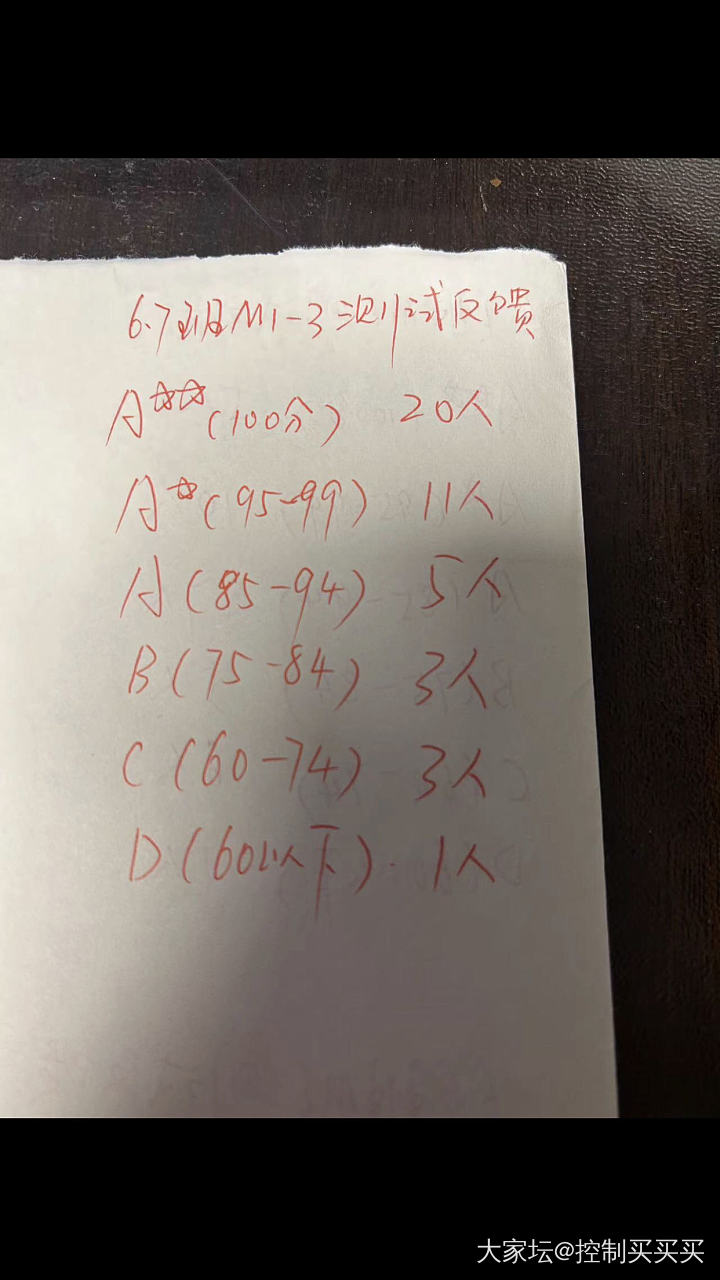 6.7班M1-3测试反馈
A☆☆(100分) 20人
A☆(95-99) 11人
A(85-94) 5人
B(75-84) 3人
C(60-74) 3人
D(60以下). 1人
大家坛@控制买买买